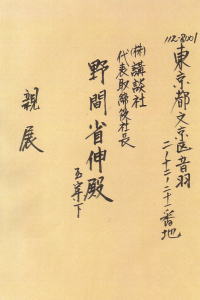 112-8001
東京都文京区音羽
二ー十二ー二十一番地
(株)講談社
代表取締役社長
野間省伸殿
親展